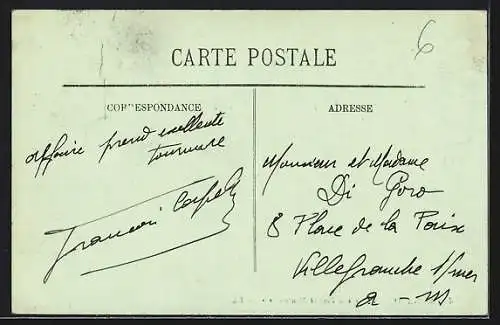 6
CARTE POSTALE
CORRESPONDANCE
ADRESSE
Affaire prend exellente
tournure
Monsieur et Madame
Di Goro
8 Place de la Paix
Villefranche s/mer
a - m